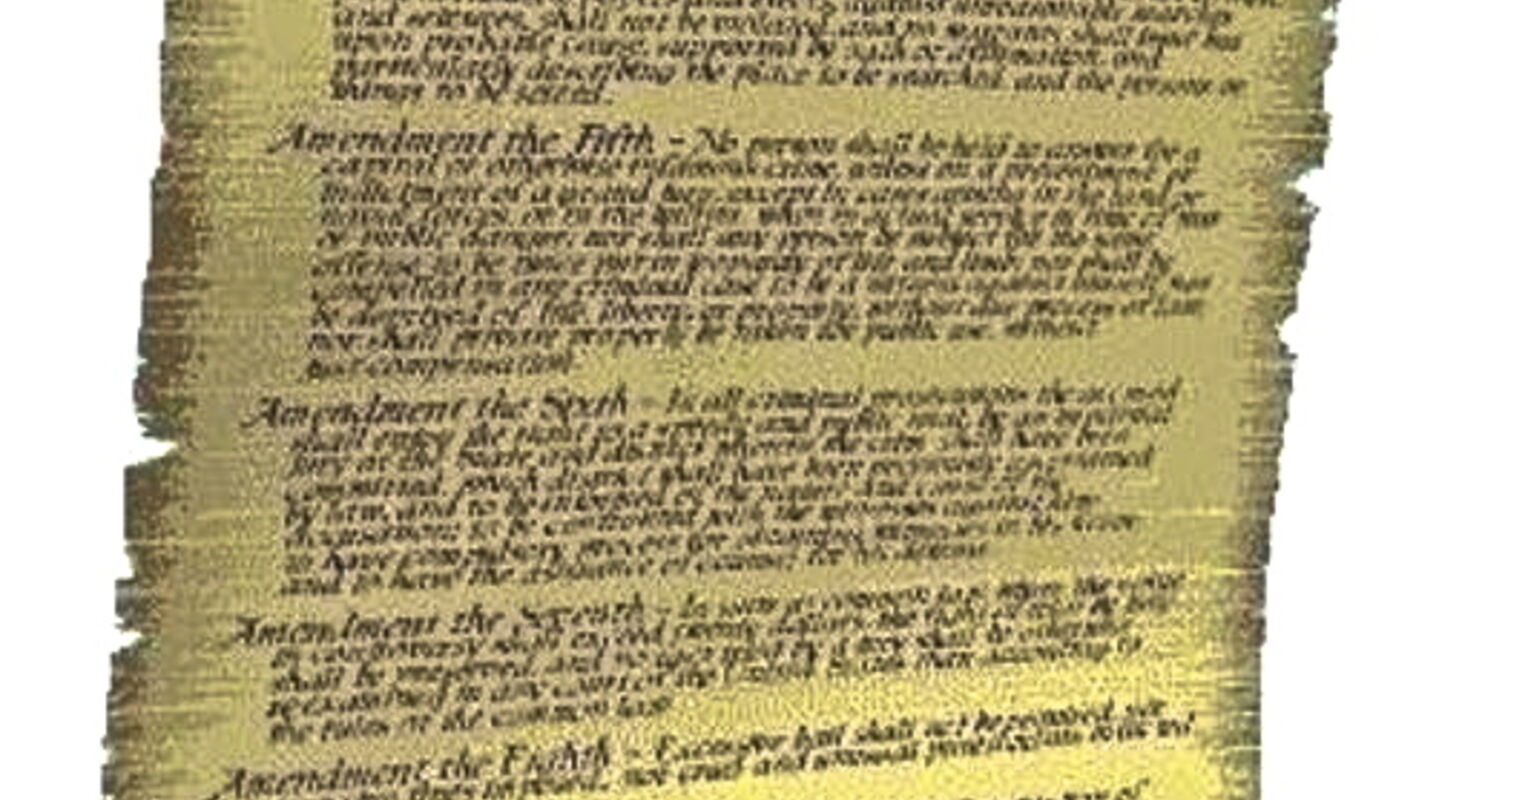 and seizures, shall not be violated, and no warrants shall issue but
upon probable cause, supported by oath or affirmation, and
particularly describing the place to be searched, and the persons or
things to be seized.
Amendment the Fifth - No person shall be held to answer for a
capital or otherwise infamous crime, unless on a presentment or
indictment of a grand jury, except in cases arising in the land or
naval forces, or in the militia, when in actual service in time of war
or public danger; nor shall any person be subject for the same
offense to be twice put in jeopardy of life and limb; nor shall be
compelled in any criminal case to be a witness against himself, nor
be deprived of life, liberty, or property, without due process of law;
nor shall private property be taken for public use, without
just compensation.
Amendment the Sixth - In all criminal prosecutions the accused
shall enjoy the right to a speedy and public trial, by an impartial
jury of the State and district wherein the crime shall have been
committed, which district shall have been previously ascertained
by law, and to be informed of the nature and cause of the
accusation; to be confronted with the witnesses against him;
to have compulsory process for obtaining witnesses in his favor,
and to have the assistance of counsel for his defense.
Amendment the Seventh - In suits at common law, where the value
in controversy shall exceed twenty dollars, the right of trial by jury
shall be preserved, and no fact tried by a jury shall be otherwise
reexamined in any court of the United States than according to
the rules of the common law.
Amendment the Eighth - Excessive bail shall not be required, nor
fines imposed, nor cruel and unusual punishments inflicted.